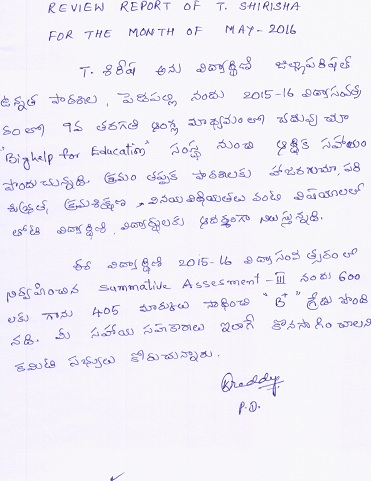 REVIEW REPORT OF T. SHIRISHA
FOR THE MONTH OF MAY-2016
T. శిరీష అను విద్యార్థిణి జిల్లాపరిషత్
ఉన్నత పాఠశాల, పెద్దపల్లి నందు 2015-16 విద్యాసంవత్స
రంలో 9వ తరగతి ఆంగ్ల మాధ్యమంలో చదువుచూ
"Bighelp for Education" సంస్థ నుంచి ఆర్థిక సహాయం
పొందుచున్నది. క్రమం తప్పక పాఠశాలకు హాజరగుచూ, పరి
శుభ్రత, క్రమశిక్షణ, వినయవిధేయతలు వంటి విషయాలలో
తోటి విద్యార్థిణి, విద్యార్థులకు ఆదర్శంగా నిలుస్తున్నది.
ఈ విద్యార్థిణి 2015-16 విద్యాసంవత్సరంలో
నిర్వహించిన Summative Assesment-III నందు 600
లకు గాను 405 మార్కులు సాధించి "B+" గ్రేడు పొంది
నది. మీ సహాయ సహకారాలు ఇలాగే కొనసాగించాలని
కమిటీ సభ్యులు కోరుచున్నారు.
P.D.